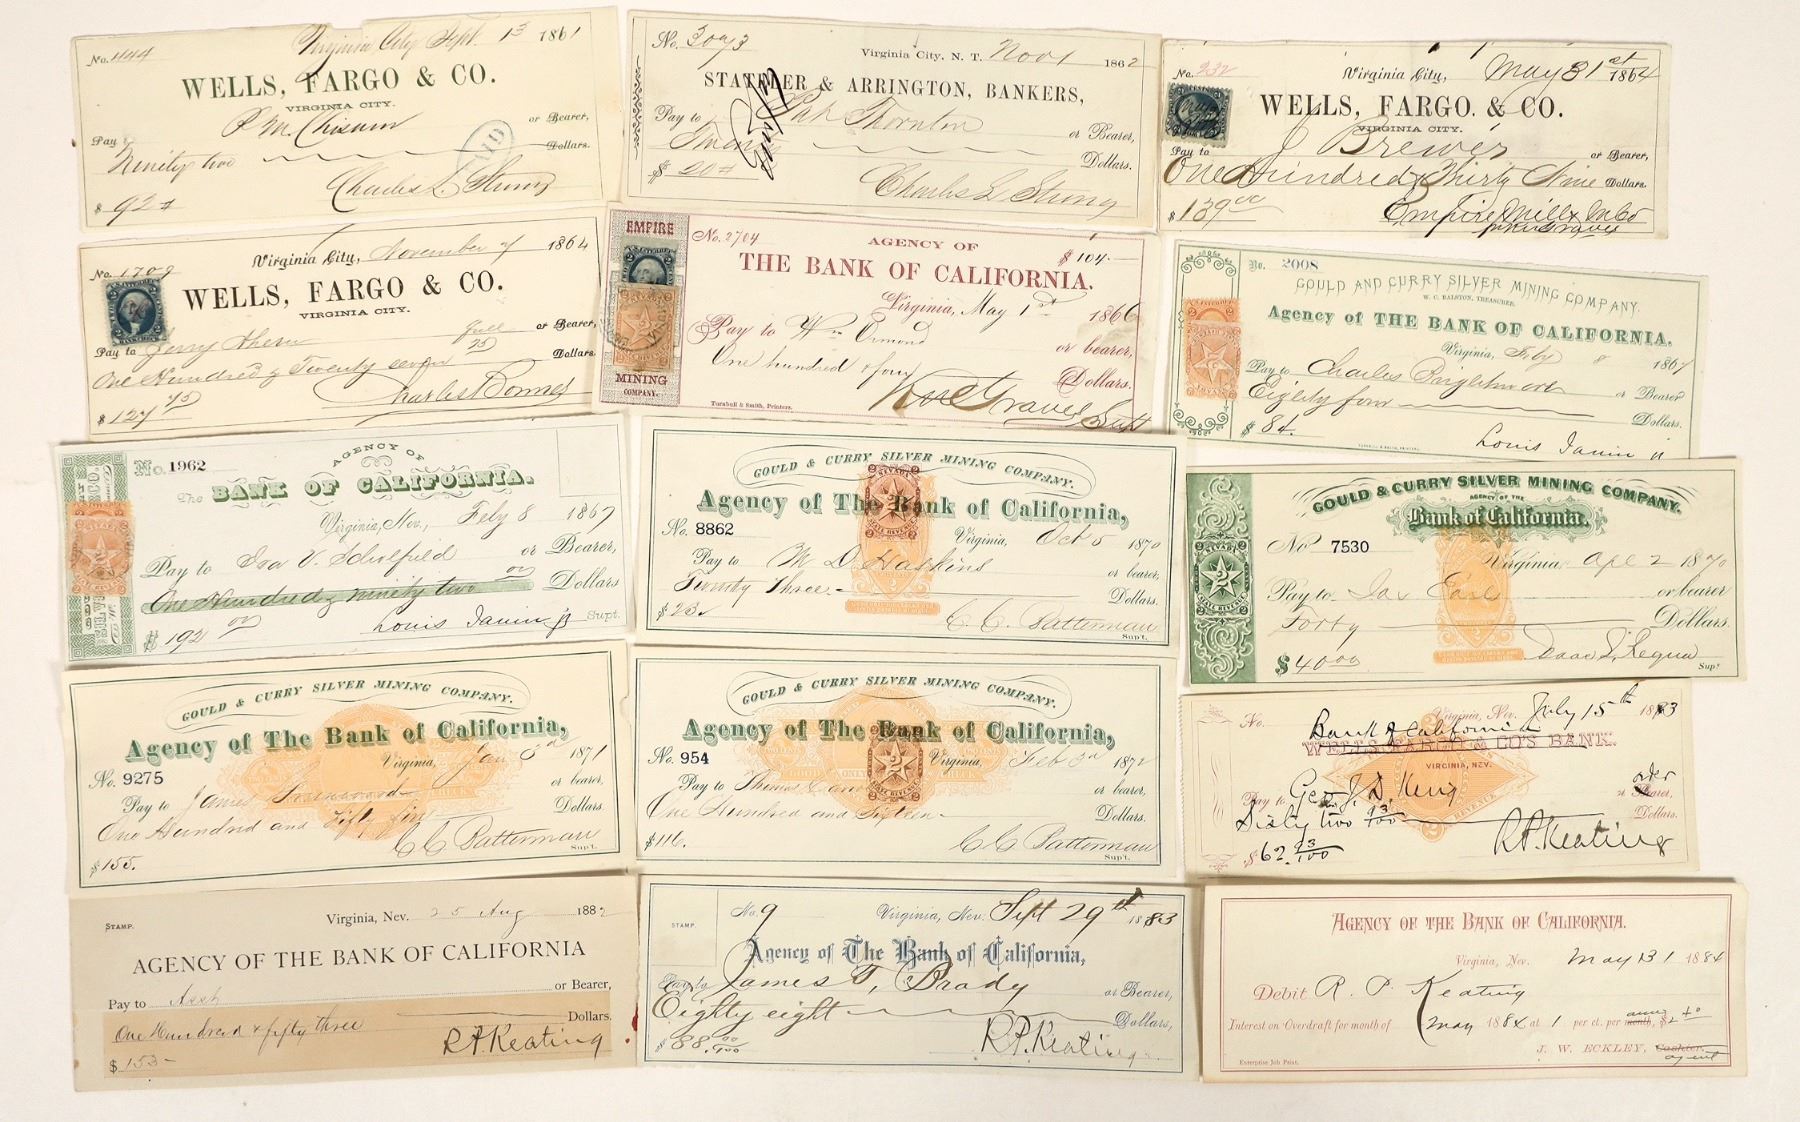 No. 1144 Virginia City Sept. 13 1861
WELLS, FARGO & CO.
VIRGINIA CITY.
P. M. Chisum or Bearer,
Pay to
Ninety two Dollars.
PAID
$92 Charles L. Strong
No. 3073 Virginia City, N. T. Nov 1 1862
STATELER & ARRINGTON, BANKERS,
Pay to Pat Thornton or Bearer,
Twenty Dollars.
$20 Charles L Strong
No. 232 Virginia City, May 31st 1864
WELLS, FARGO & CO.
VIRGINIA CITY.
Pay to J Brewer or Bearer,
One Hundred & Thirty Nine Dollars.
$139 00 Empire Mill & M Co
Virginia City, November 1864
No. 1709
WELLS, FARGO & CO.
VIRGINIA CITY.
Pay to Jerry or Bearer,
One Hundred & Twenty seven 75 Dollars.
$127 75 Charles Bonner
EMPIRE
MINING
COMPANY.
No. 2704 AGENCY OF $104.—
THE BANK OF CALIFORNIA.
Virginia, May 1st 1866
Pay to Wm Ormond or bearer,
One hundred & four Dollars.
Turnbull & Smith, Printers.
Graves Supt
No. 2008
GOULD AND CURRY SILVER MINING COMPANY.
W. C. RALSTON, TREASURER.
Agency of THE BANK OF CALIFORNIA.
Virginia, Feby 8 1867
Pay to Charles or Bearer
Eighty four Dollars.
$84. Louis Janin Jr
No. 1962 AGENCY OF
The BANK OF CALIFORNIA.
Virginia, Nev., Feby 8 1867
Pay to Schofield or Bearer,
One Hundred & ninety two 00 Dollars
$192 00 Louis Janin Jr Supt.
GOULD & CURRY SILVER MINING COMPANY.
Agency of The Bank of California,
No. 8862 Virginia, Oct 5 1870
Pay to M. D. Haskins or bearer,
Twenty Three Dollars.
$23 C. C. Batterman Sup't.
GOULD & CURRY SILVER MINING COMPANY.
AGENCY OF THE
Bank of California.
No 7530 Virginia Apl 2 1870
Pay to Jas Earl or bearer
Forty Dollars.
$40 00 Isaac L. Requa Sup't
NEVADA
2
STATE REVENUE
GOULD & CURRY SILVER MINING COMPANY.
Agency of The Bank of California,
No. 9275 Virginia, Jan 3d 1871
Pay to James or bearer,
One Hundred and Fifty five Dollars.
$155. C C Batterman Sup't
GOULD & CURRY SILVER MINING COMPANY.
Agency of The Bank of California,
No. 954 Virginia, Feb 3d 1872
Pay to Thomas or bearer,
One Hundred and Sixteen Dollars.
$116. C C Batterman Sup't
No. Virginia, Nev. July 15th 1883
Bank of California
WELLS FARGO & CO'S BANK.
VIRGINIA, NEV.
Pay to Geo. J. D. King or Bearer, order
Sixty two 93/100 Dollars.
$62 93/100 R. P. Keating
STAMP. Virginia, Nev. 25 Aug 1882
AGENCY OF THE BANK OF CALIFORNIA
Pay to or Bearer,
One Hundred & fifty three Dollars.
$153— R. P. Keating
STAMP. No. 9 Virginia, Nev. Sept 29th 1883
Agency of The Bank of California,
Pay to James T, Brady or Bearer,
Eighty eight Dollars,
$88. 00/100 R. P. Keating
AGENCY OF THE BANK OF CALIFORNIA.
Virginia, Nev. May 31 1884
Debit R. P. Keating
Interest on Overdraft for month of May 1884 at 1 per ct. per month, annum $2 40
J. W. ECKLEY, Cashier. agent
Enterprise Job Print.